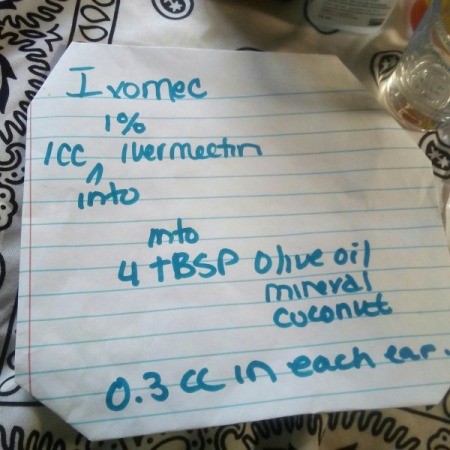 Ivomec
1%
1CC Ivermectin
^
into
into
4 TBSP Olive oil
mineral
coconut
0.3 cc in each ear.